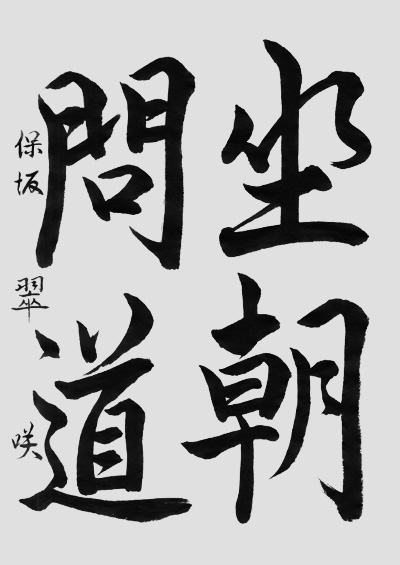 坐朝
問道
保坂翠咲